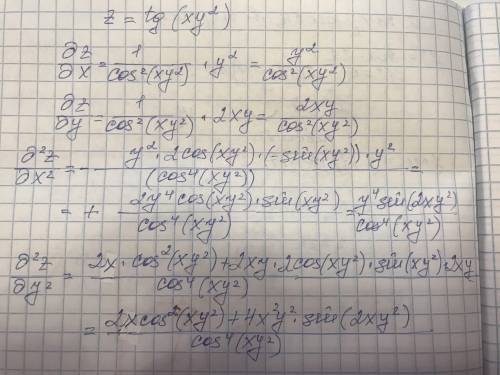 z = tg (xy²)
∂z/∂x = 1/cos²(xy²) · y² = y²/cos²(xy²)
∂z/∂y = 1/cos²(xy²) · 2xy = 2xy/cos²(xy²)
∂²z/∂x² = - y² · 2cos(xy²) · (-sin(xy²)) · y²/(cos⁴(xy²)) =
= + 2y⁴cos(xy²) · sin(xy²)/cos⁴(xy²) = y⁴ sin(2xy²)/cos⁴(xy²)
∂²z/∂y² = 2x · cos²(xy²) + 2xy · 2cos(xy²) · sin(xy²) · 2xy/cos⁴(xy²)
= 2x cos²(xy²) + 4x²y² · sin(2xy²)/cos⁴(xy²)